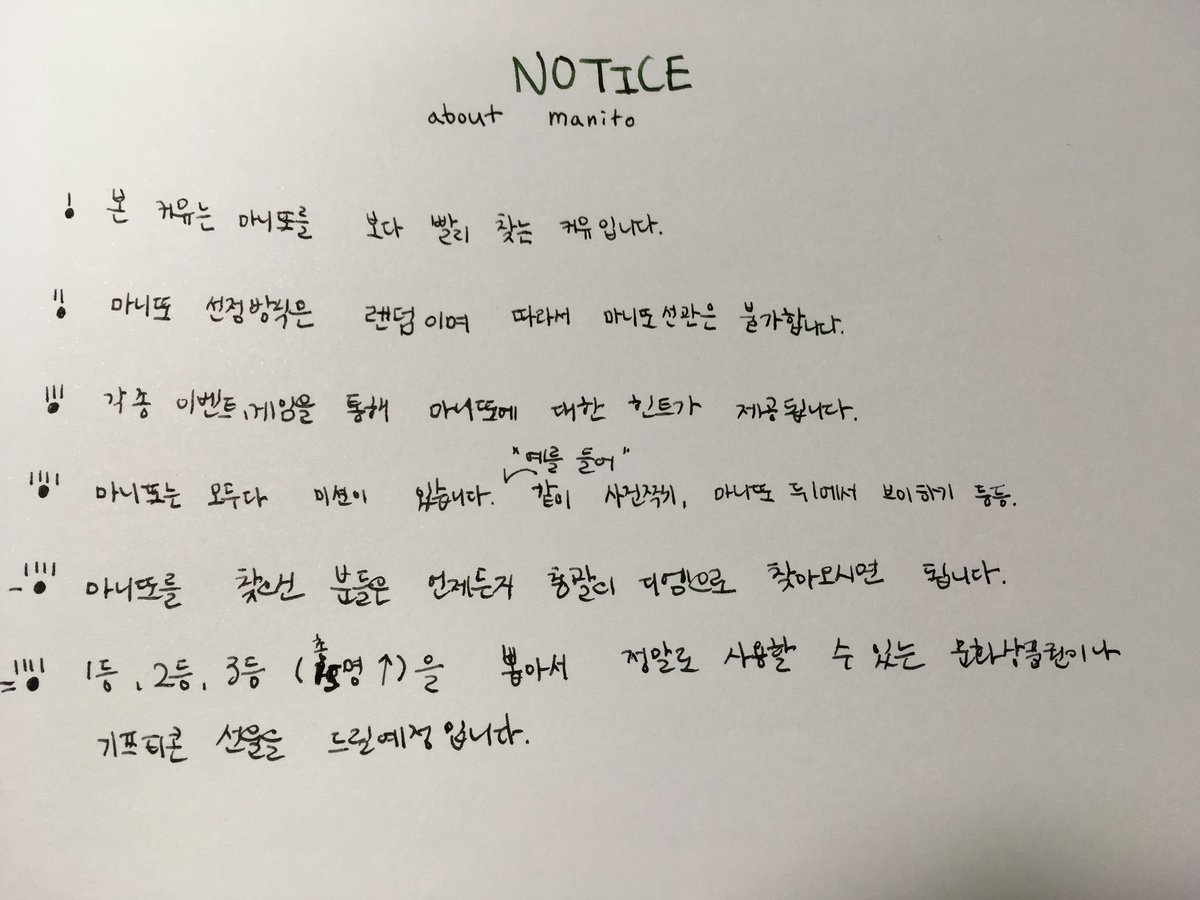 NOTICE
about manito
! 본 커뮤는 마니또를 보다 빨리 찾는 커뮤입니다.
!! 마니또 선정방식은 랜덤이며 따라서 마니또선관은 불가합니다.
!!! 각종 이벤트, 게임을 통해 마니또에 대한 힌트가 제공됩니다.
"예를 들어"
!!!! 마니또는 모두다 미션이 있습니다. 같이 사진찍기, 마니또 뒤에서 브이하기 등등.
-!!!! 마니또를 찾으신 분들은 언제든지 총괄이 디엠으로 찾아오시면 됩니다.
=!!!! 1등, 2등, 3등 (총 15명↑)을 뽑아서 정말로 사용할 수 있는 문화상품권이나
기프티콘 선물을 드릴예정입니다.